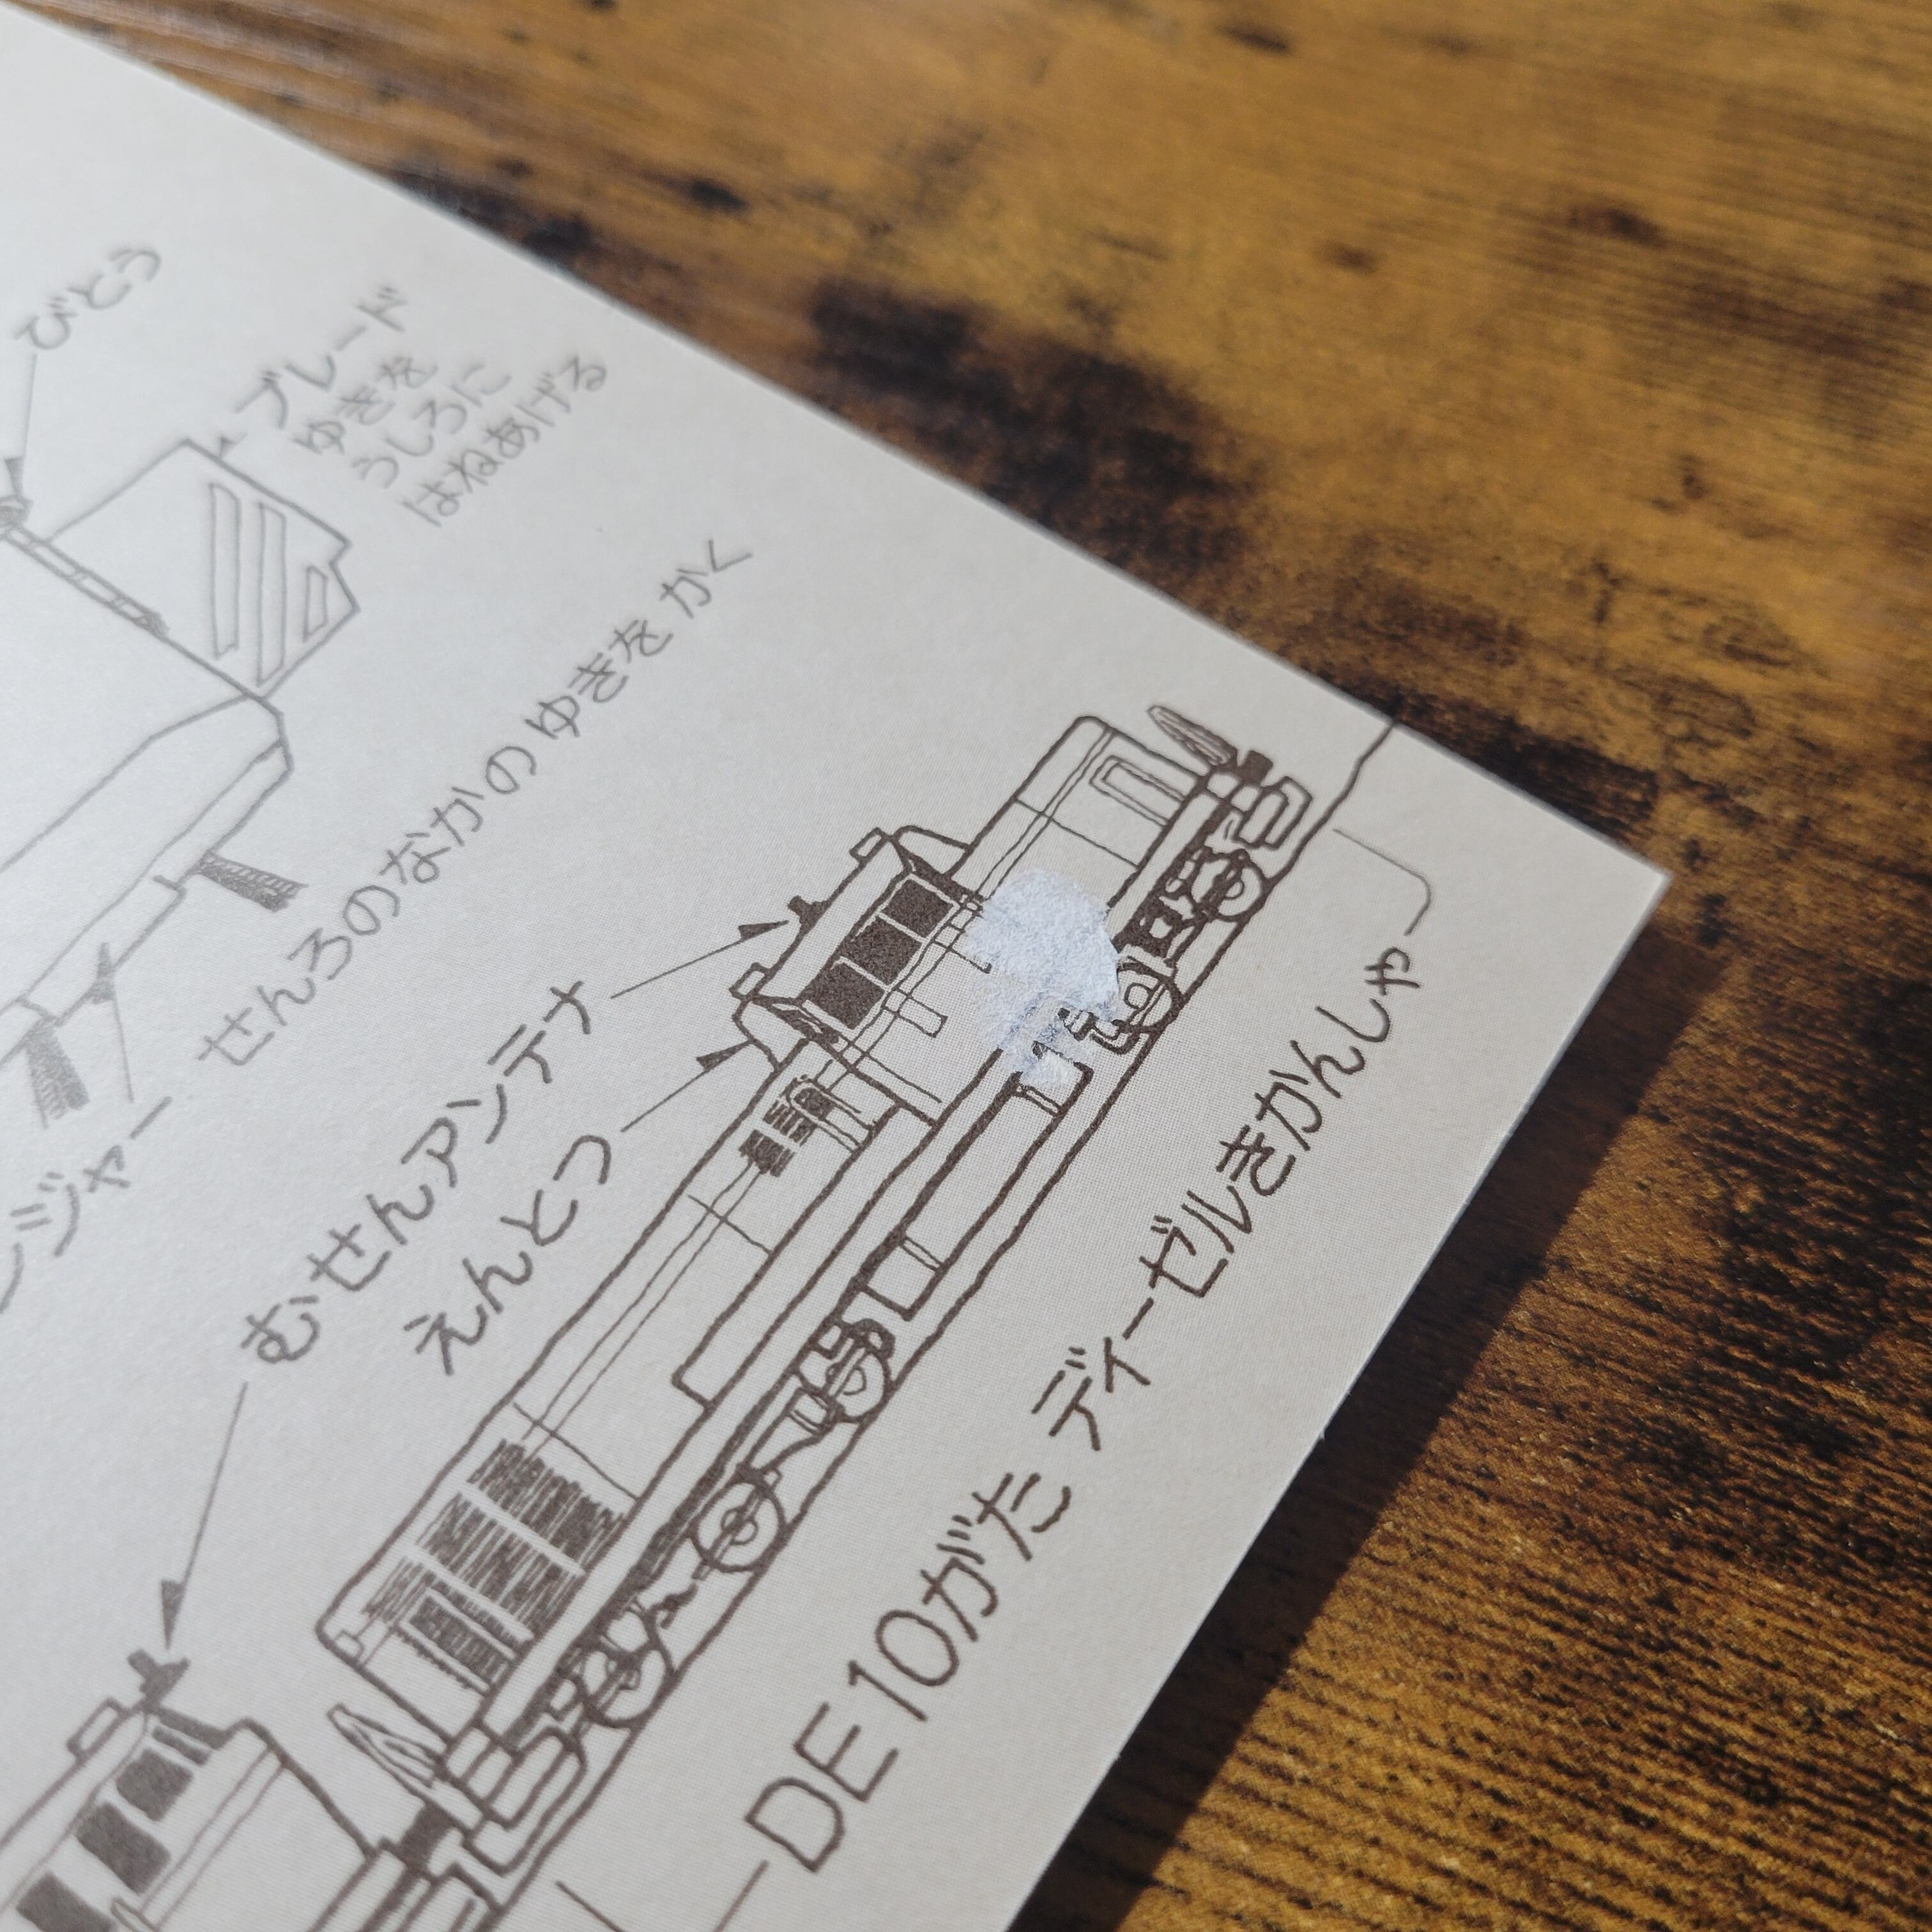 びとう
ブレード
ゆきを
うしろに
はねあげる
せんろのなかの ゆきを かく
ンジャー
むせんアンテナ
えんとつ
DE10がた ディーゼルきかんしゃ